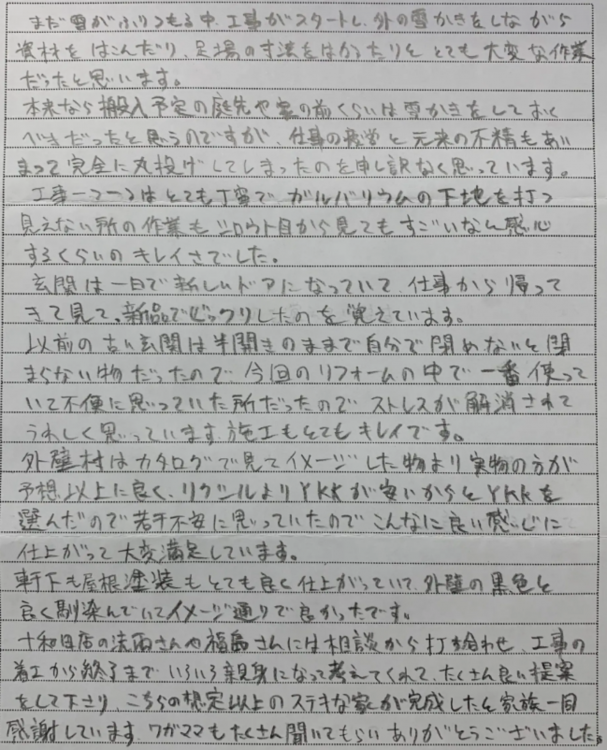 まだ雪がふりつもる中、工事がスタートし、外の雪かきをしながら
資材をはこんだり、足場の寸法をはかったりと とても大変な作業
だったと思います。
本来なら搬入予定の庭先や家の前くらいは雪かきをしておく
べきだったと思うのですが、仕事の疲労と元来の不精もあい
まって完全に丸投げしてしまったのを申し訳なく思っています。
工事一つ一つはとても丁寧で ガルバリウムの下地を打つ
見えない所の作業もシロウト目から見てもすごいなんと感心
するくらいのキレイさでした。
玄関は一日で新しいドアになっていて、仕事から帰って
きて見て、新品でビックリしたのを覚えています。
以前の古い玄関は半開きのままで自分で閉めないと閉
まらない物だったので、今回のリフォームの中で一番使って
いて不便に思っていた所だったので ストレスが解消されて
うれしく思っています。施工もとてもキレイです。
外壁材はカタログで見てイメージした物より実物の方が
予想以上に良く、リクシルよりYKKが安いからとYKKを
選んだので若干不安に思っていたので こんなに良い感じに
仕上がって大変満足しています。
軒下も屋根塗装もとても良く仕上がっていて、外壁の黒色と
良く馴染んでいてイメージ通りで良かったです。
十和田店の法西さんや福島さんには相談から打ち合わせ、工事の
着工から終了まで いろいろ親身になって考えてくれて、たくさん良い提案
をして下さり、こちらの想定以上のステキな家が完成したと家族一同
感謝しています。ワガママもたくさん聞いてもらい ありがとうございました。